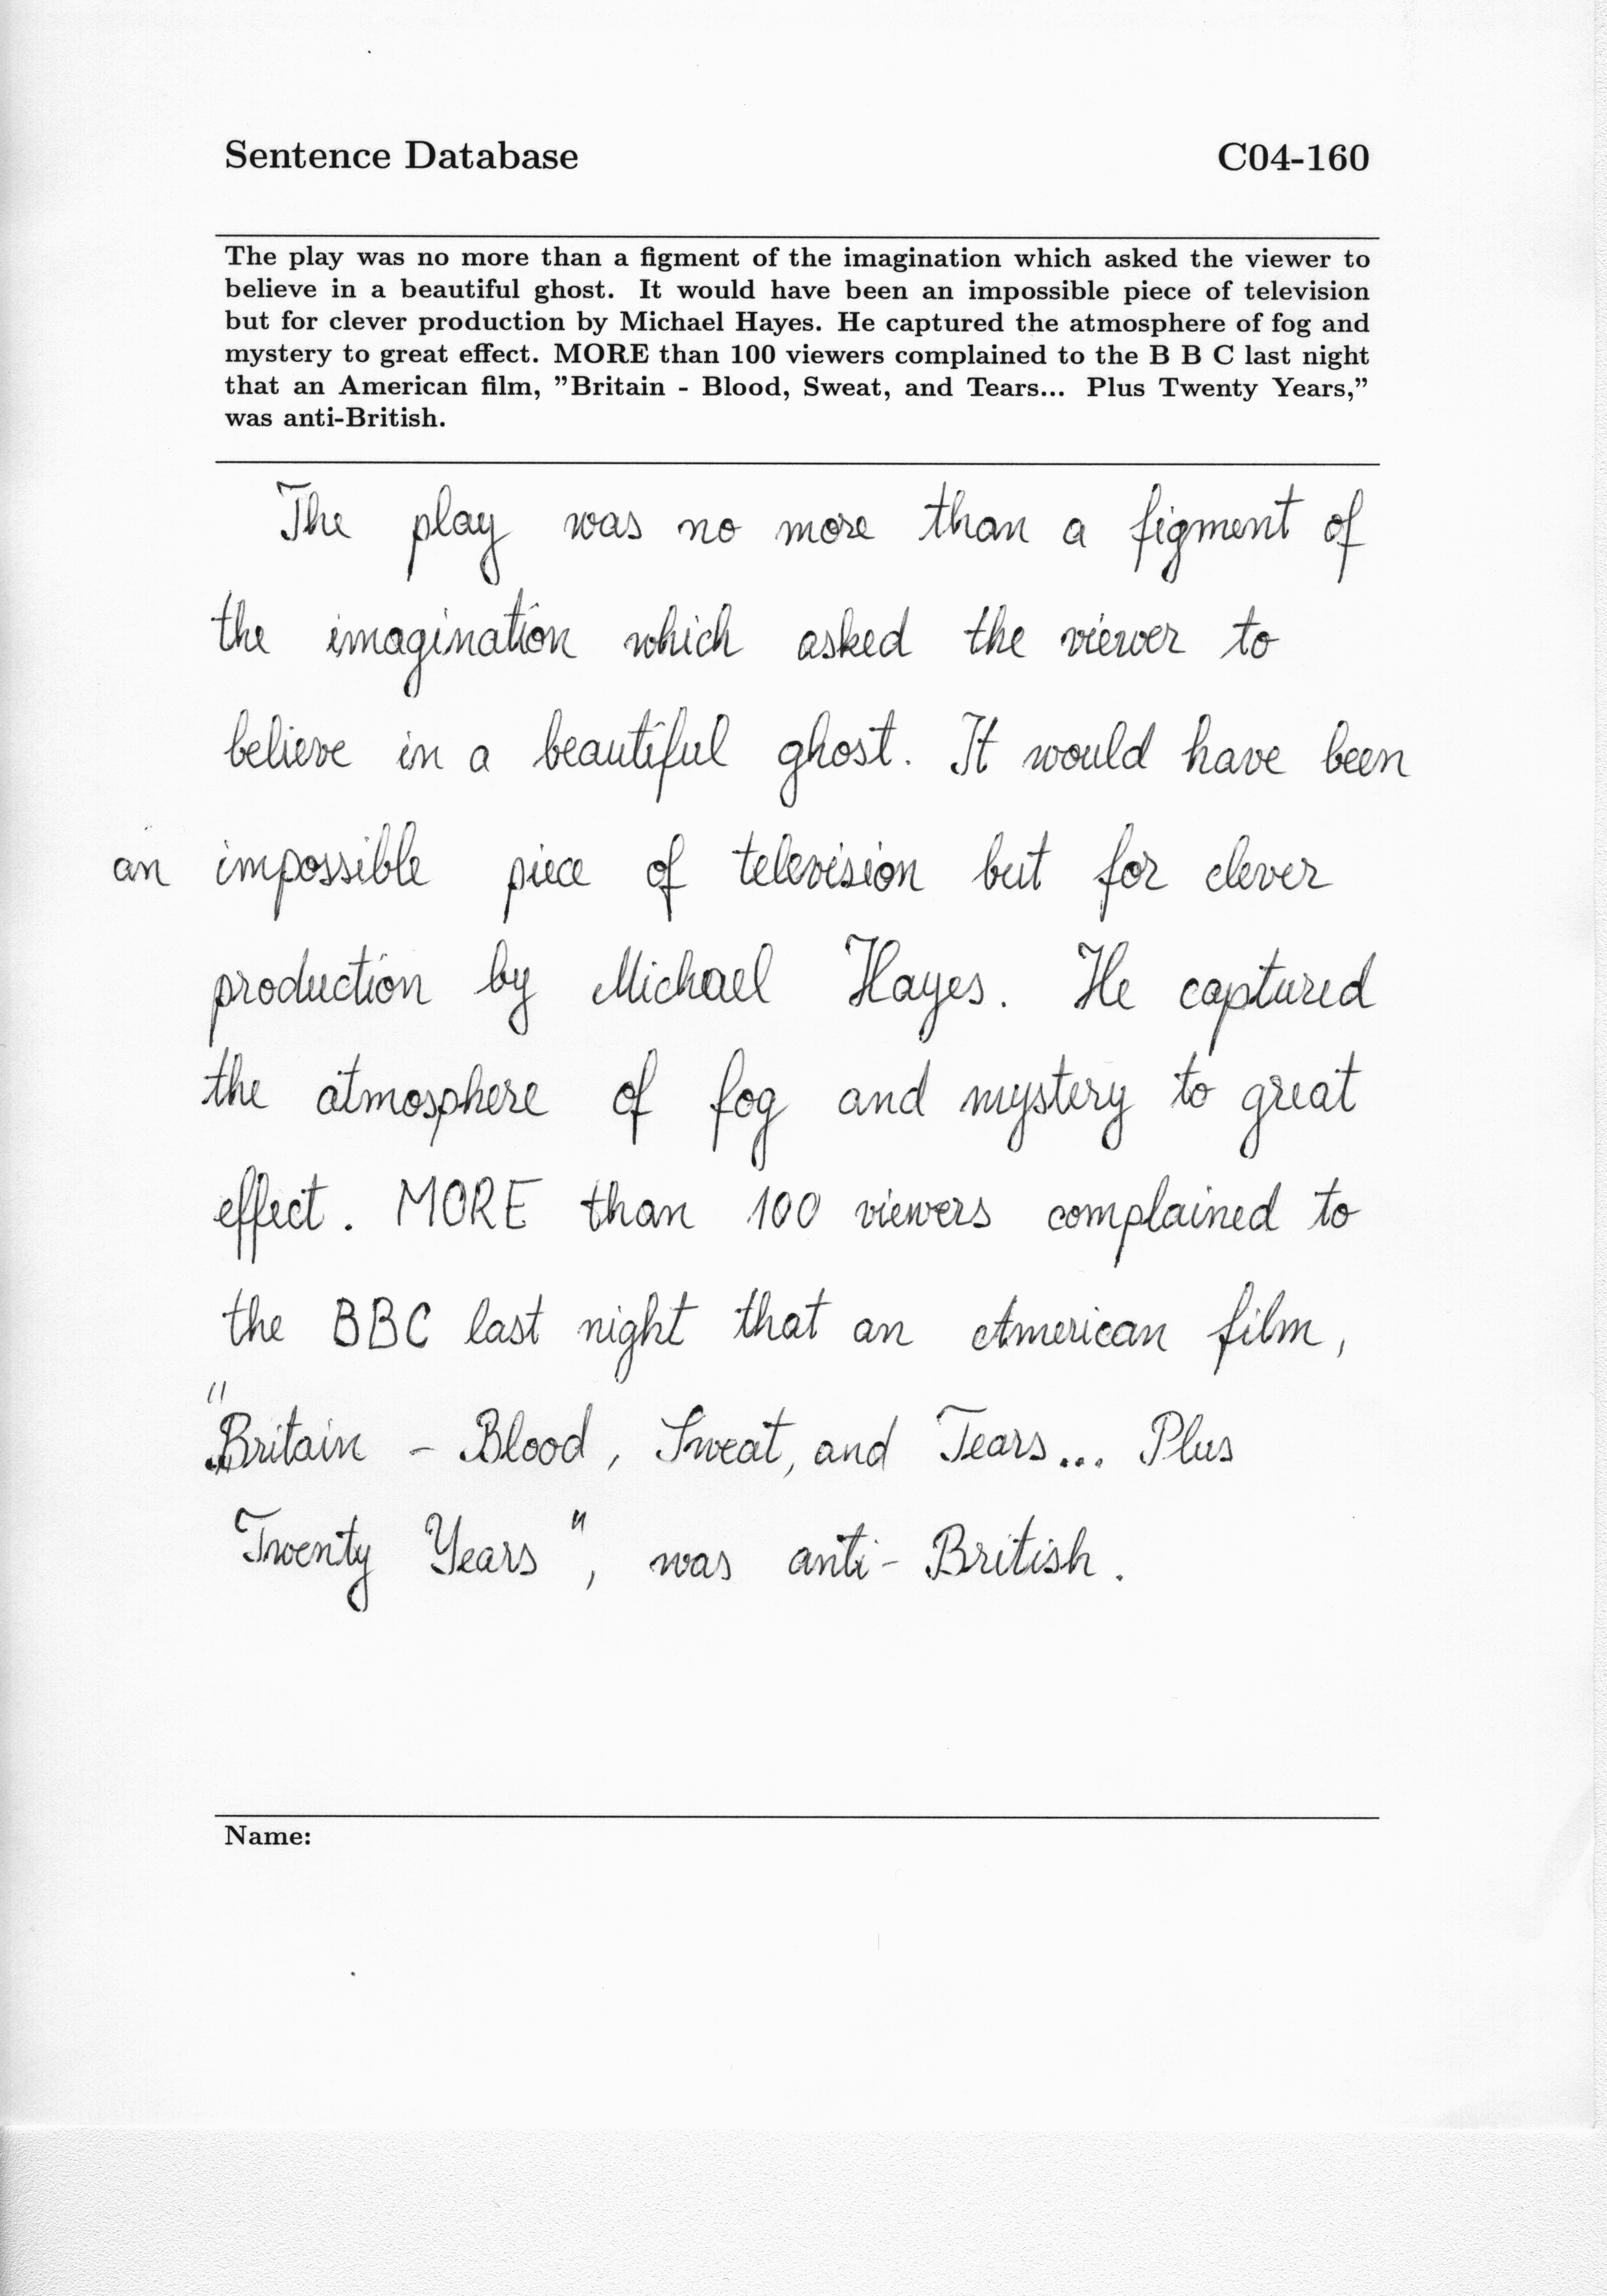 Sentence Database C04-160
The play was no more than a figment of the imagination which asked the viewer to
believe in a beautiful ghost. It would have been an impossible piece of television
but for clever production by Michael Hayes. He captured the atmosphere of fog and
mystery to great effect. MORE than 100 viewers complained to the B B C last night
that an American film, ”Britain - Blood, Sweat, and Tears... Plus Twenty Years,”
was anti-British.
The play was no more than a figment of
the imagination which asked the viewer to
believe in a beautiful ghost. It would have been
an impossible piece of television but for clever
production by Michael Hayes. He captured
the atmosphere of fog and mystery to great
effect. MORE than 100 viewers complained to
the BBC last night that an American film,
"Britain - Blood, Sweat, and Tears... Plus
Twenty Years", was anti-British.
Name: